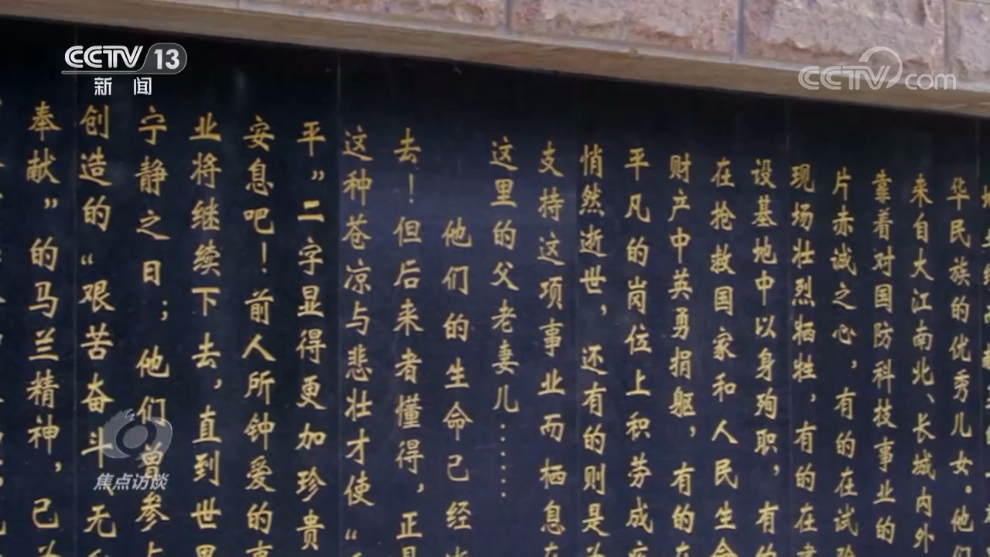 CCTV 13
新闻
CCTV.com
华民族的优秀儿女。他们
来自大江南北、长城内外
靠着对国防科技事业的
片赤诚之心，有的在试
现场壮烈牺牲，有的在
设基地中以身殉职，有的
在抢救国家和人民生命
财产中英勇捐躯，有的在
平凡的岗位上积劳成疾
悄然逝世，还有的则是为
支持这项事业而栖息在
这里的父老妻儿……
他们的生命已经
去！但后来者懂得，正是
这种苍凉与悲壮才使“
平”二字显得更加珍贵
安息吧！前人所钟爱的事
业将继续下去，直到世界
宁静之日；他们曾参与
创造的“艰苦奋斗、无私
奉献”的马兰精神，已
焦点访谈